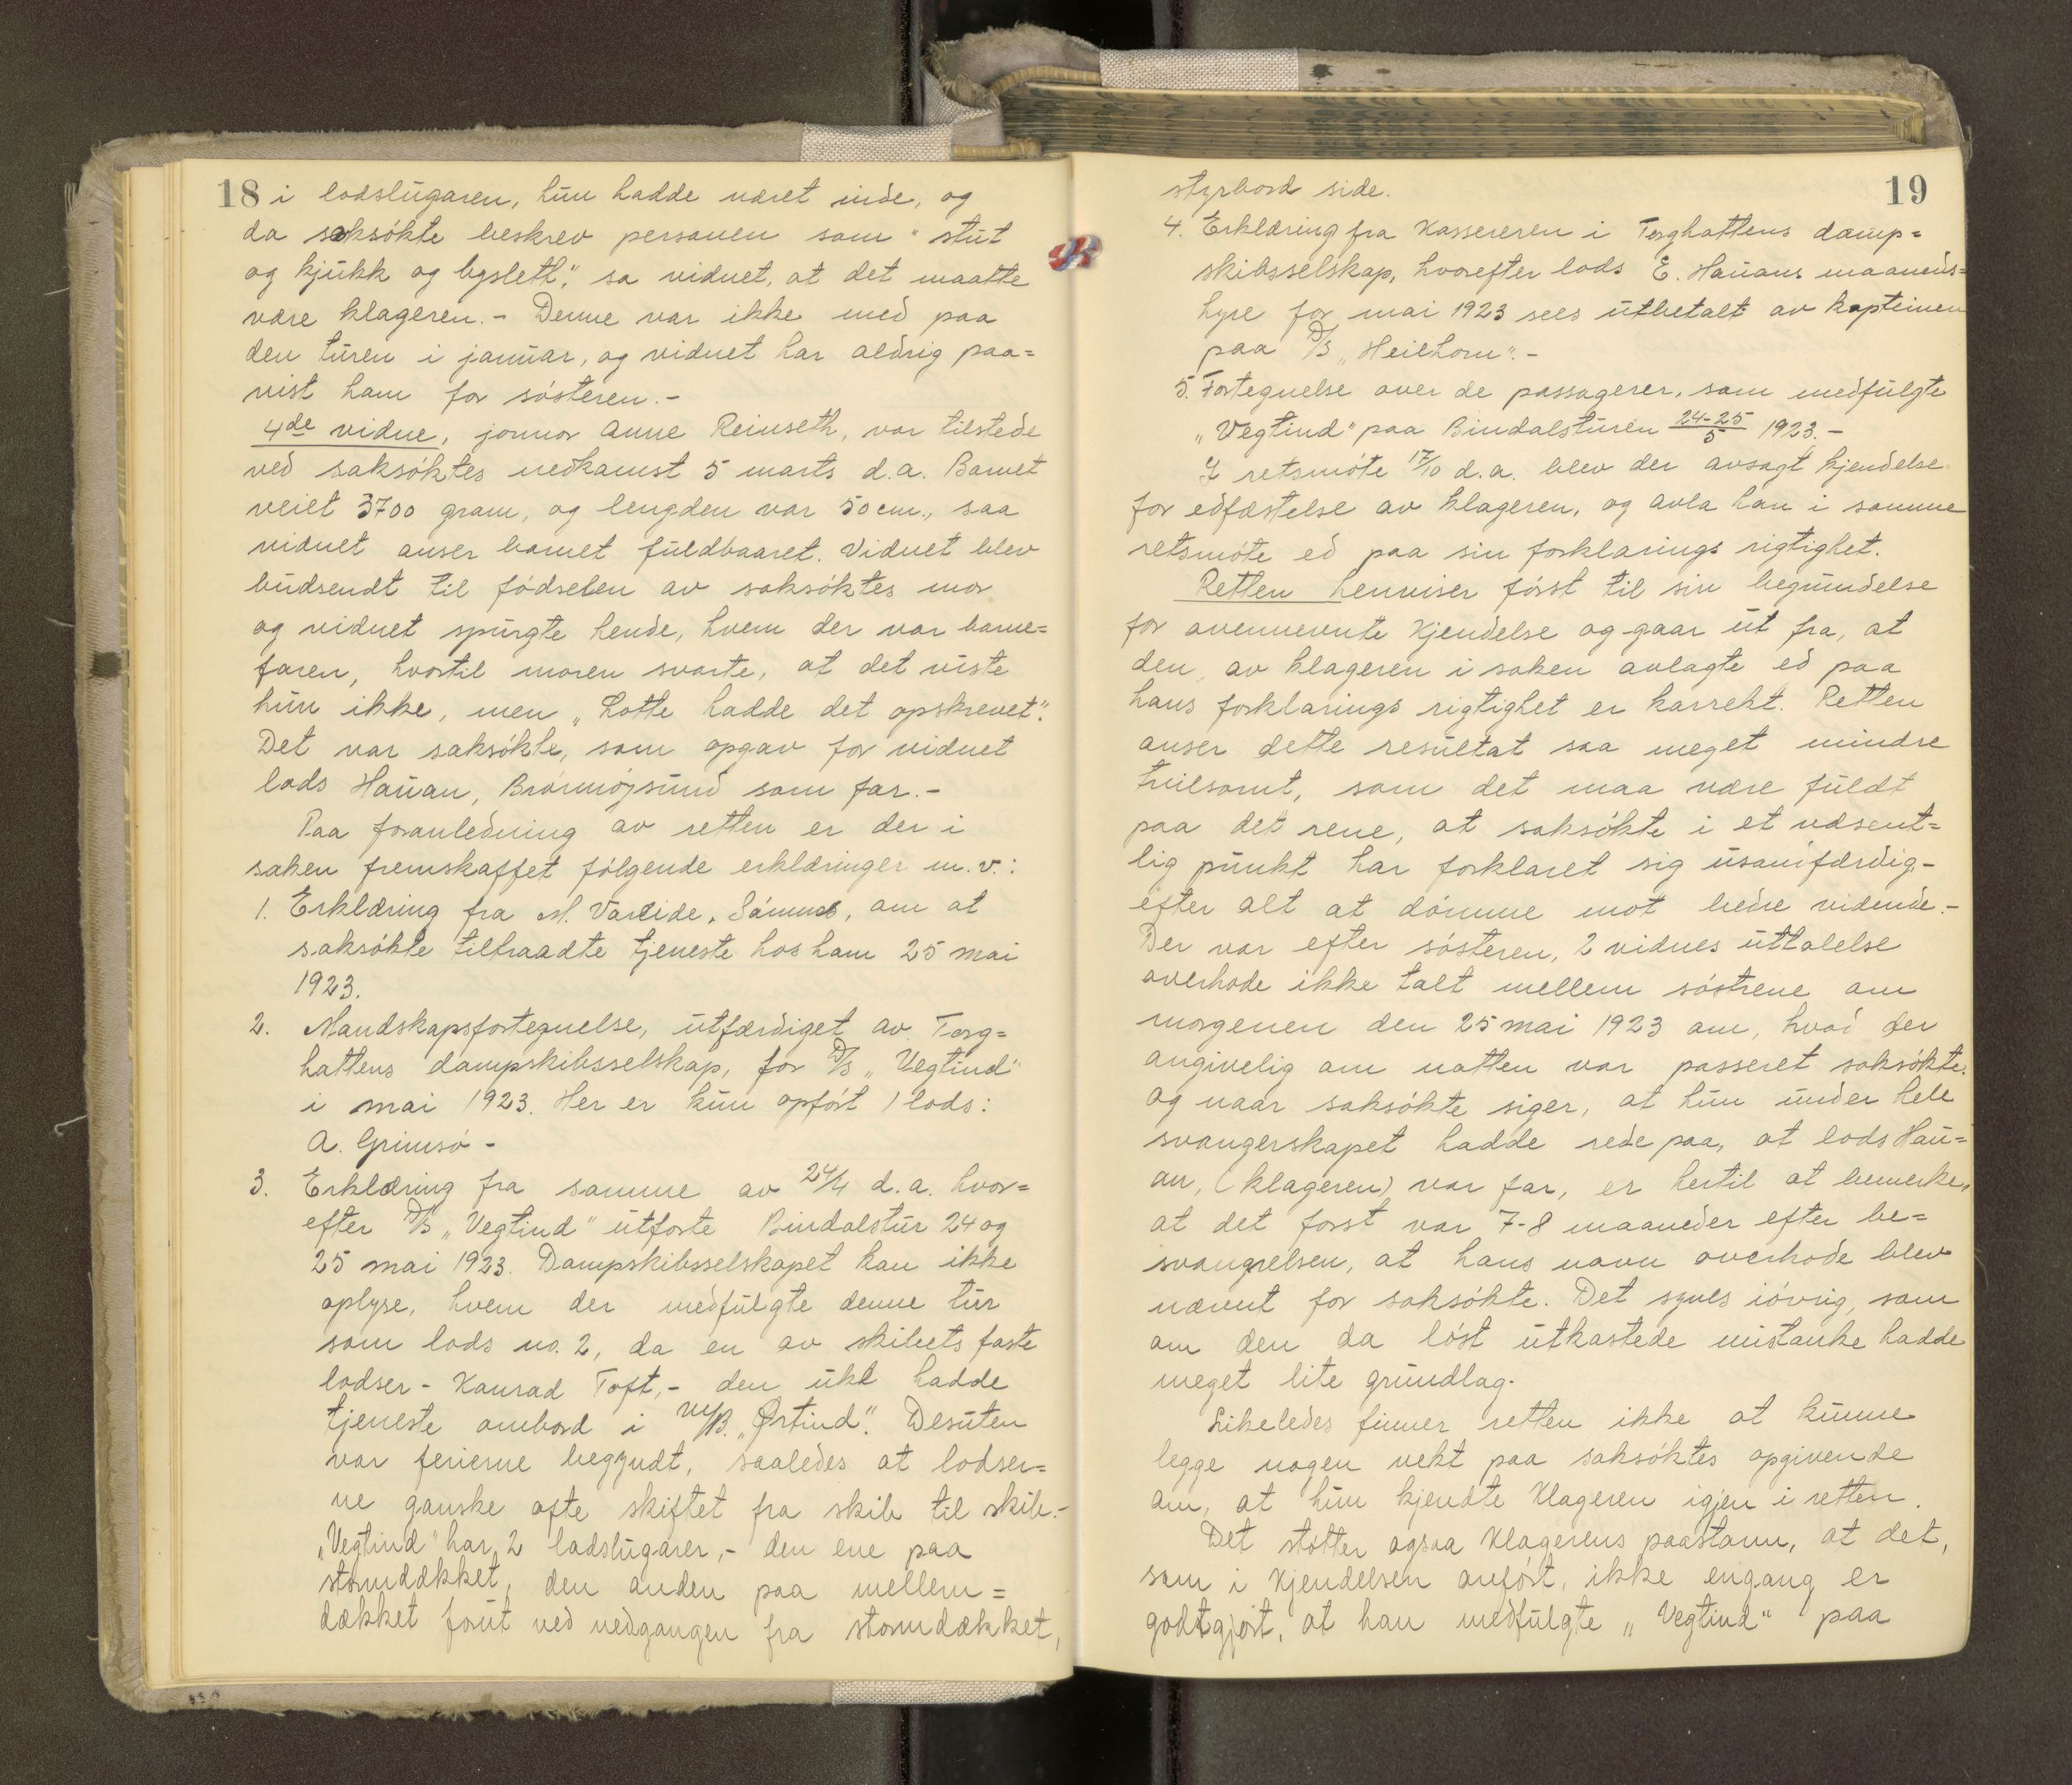 18
i lodslugaren, hun hadde været inde, og
da saksøkte beskrev personen som "stut
og kjukk og lyslett", sa vidnet, at det maatte
være klageren.- Denne var ikke med paa
den turen i januar, og vidnet har aldrig paa=
vist ham for søsteren.-
4de vidne, jormor Anne Reinseth, var tilstede
ved saksøktes nedkomst 5 marts d.a. Barnet
veiet 3700 gram, og lengden var 50 cm., saa
vidnet anser barnet fuldbaaret. Vidnet blev
budsendt til fødselen av saksøktes mor
og vidnet spurgte hende, hvem der var barne=
faren, hvortil moren svarte, at det viste
hun ikke, men "Lotte hadde det opskrevet".
Det var saksøkte, som opgav for vidnet
lods Hauan, Brønnøysund som far.-
Paa foranledning av retten er der i
saken fremskaffet følgende erklæringer m.v.:
1. Erklæring fra M. Vareide, Sømnes, om at
saksøkte tiltraadte tjeneste hos ham 25 mai
1923.
2. Mandskapsfortegnelse, utfærdiget av Torg=
hattens dampskibsselskap, for D/S "Vegtind"
i mai 1923. Her er kun opført 1 lods:
A. Grimsø -
3. Erklæring fra samme av 24/4 d.a. hvor=
efter D/S "Vegtind" utførte Bindalstur 24 og
25 mai 1923. Dampskibsselskapet kan ikke
oplyse, hvem der medfulgte denne tur
som lods no. 2, da en av skibets faste
lodser - Konrad Toft,- den uke hadde
tjeneste ombord i M/B. "Ørtind". Desuten
var ferierne begyndt, saaledes at lodser=
ne ganske ofte skiftet fra skib til skib.-
"Vegtind" har 2 lodslugarer,- den ene paa
stormdækket, den anden paa mellem=
dækket forut ved nedgangen fra stormdækket,
19
styrbord side.
4. Erklæring fra Kassereren i Torghattens damp=
skibsselskap, hvorefter lods E. Hauans maaneds=
hyre for mai 1923 sees utbetalt av kapteinen
paa D/S "Heilhorn".-
5. Fortegnelse over de passagerer, som medfulgte
"Vegtind" paa Bindalsturen 24-25/5 1923.-
I retsmøte 17/10 d.a. blev der avsagt kjendelse
for edfæstelse av klageren, og avla han i samme
retsmøte ed paa sin forklarings rigtighet.
Retten henviser først til sin begrundelse
for ovennevnte Kjendelse og gaar ut fra, at
den av klageren i saken avlagte ed paa
hans forklarings rigtighet er korrekt. Retten
anser dette resultat saa meget mindre
tvilsomt, som det maa være fuldt
paa det rene, at saksøkte i et væsent=
lig punkt har forklaret sig usandfærdig-
efter alt at dømme mot bedre vidende.-
Der var efter søsteren, 2 vidnes uttalelse
overhode ikke talt mellem søstrene om
morgenen den 25 mai 1923 om, hvad der
angivelig om natten var passeret saksøkte.
Og naar saksøkte siger, at hun under hele
svangerskapet hadde rede paa, at lods Hau=
an, (klageren) var far, er hertil at bemerke,
at det først var 7-8 maaneder efter be=
svangrelsen, at hans navn overhode blev
nævnt for saksøkte. Det synes iøvrig, som
om den da løst utkastede mistanke hadde
meget lite grundlag.
Likeledes finner retten ikke at kunne
legge nogen vekt paa saksøktes opgivende
om, at hun kjendte Klageren igjen i retten.
Det støtter ogsaa Klagerens paastann, at det,
som i Kjendelsen anført, ikke engang er
godtgjort, at han medfulgte "Vegtind" paa